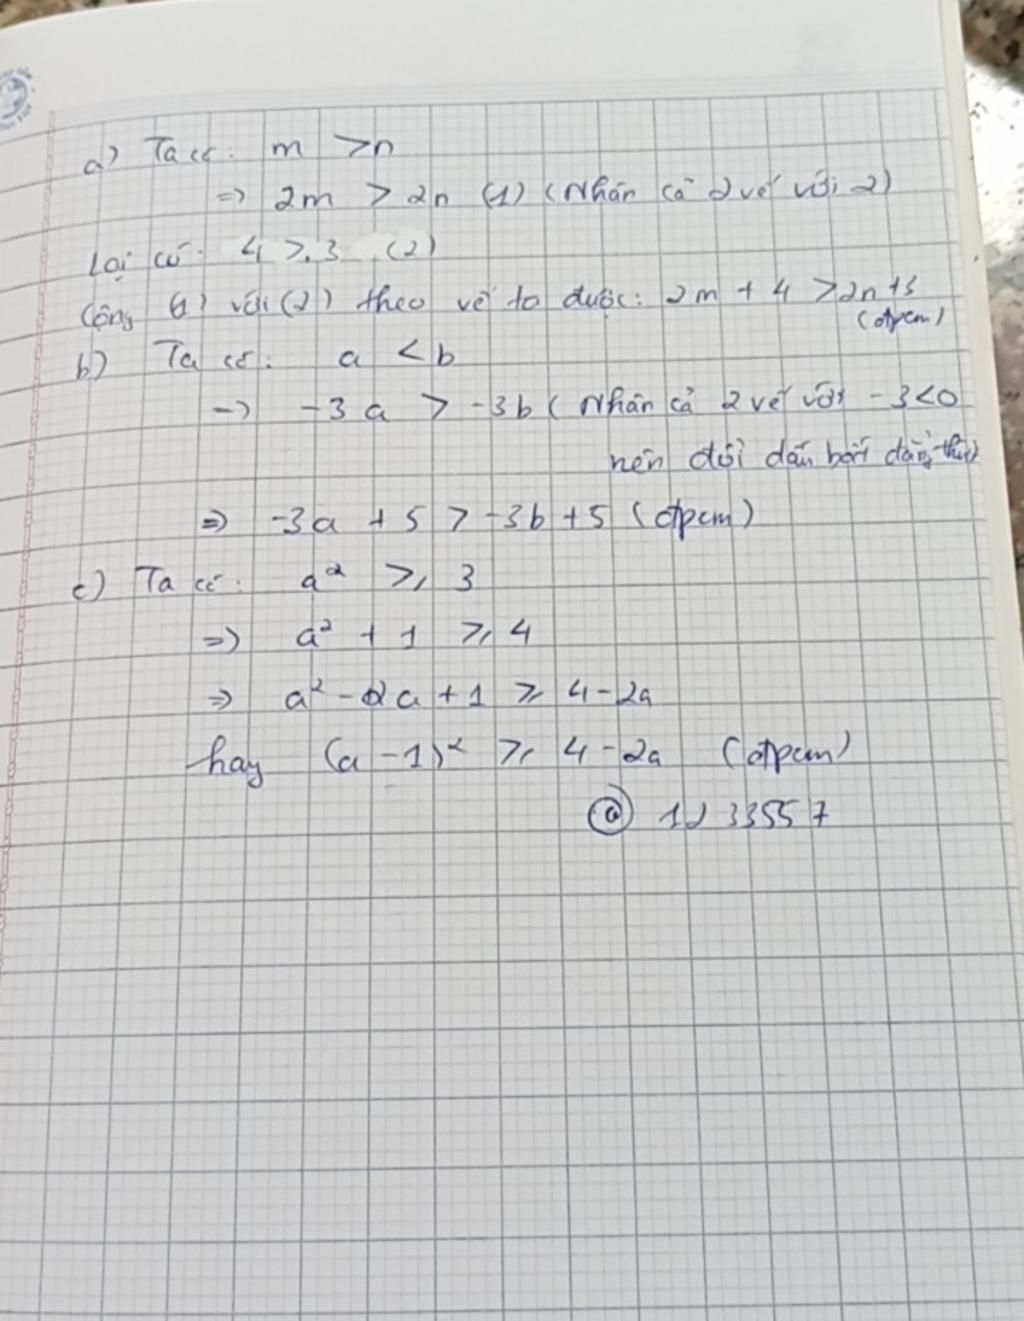 a) Ta có: m > n
=> 2m > 2n (1) (Nhân cả 2 vế với 2)
Lại có: 4 > 3 (2)
Cộng (1) với (2) theo vế ta được: 2m + 4 > 2n + 3
(đpcm)
b) Ta có: a < b
=> -3a > -3b (Nhân cả 2 vế với -3<0
nên đổi dấu bất đẳng thức)
=> -3a + 5 > -3b + 5 (đpcm)
c) Ta có: a² ⩾ 3
=> a² + 1 ⩾ 4
=> a² - 2a + 1 ⩾ 4 - 2a
hay (a - 1)² ⩾ 4 - 2a (đpcm)